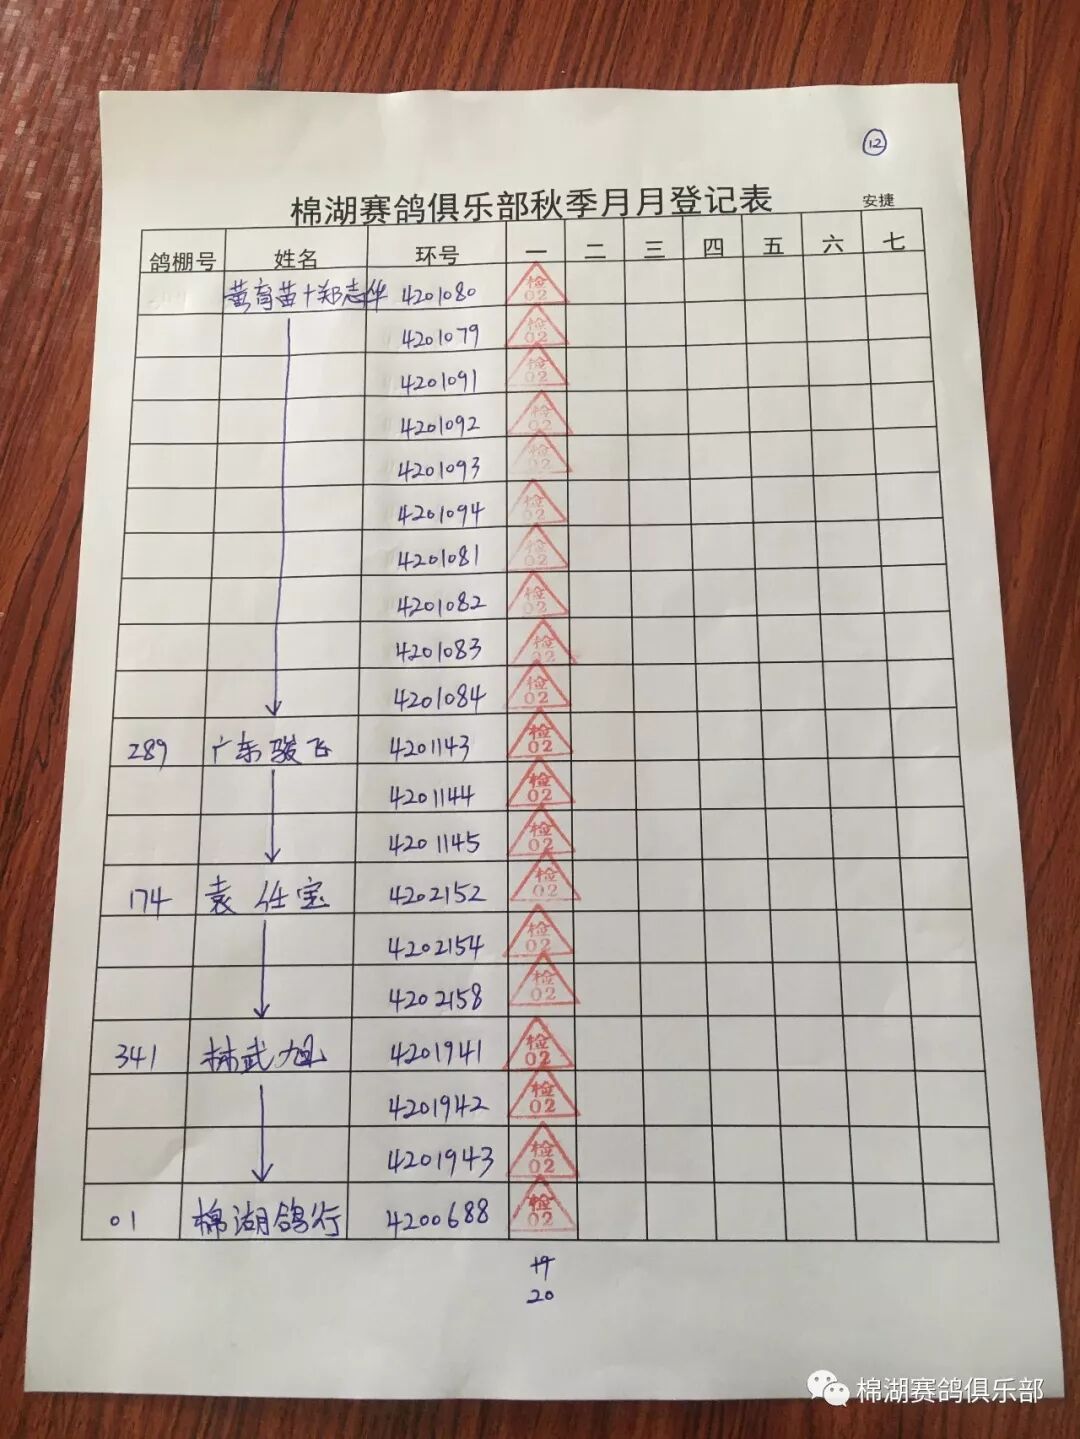 12
棉湖赛鸽俱乐部秋季月月登记表 安捷
鸽棚号 姓名 环号 一 二 三 四 五 六 七
黄育苗+郑志华 4201080 检 02
4201079 检 02
4201091 检 02
4201092 检 02
4201093 检 02
4201094 检 02
4201081 检 02
4201082 检 02
4201083 检 02
4201084 检 02
289 广东骏飞 4201143 检 02
4201144 检 02
4201145 检 02
174 袁仕宝 4202152 检 02
4202154 检 02
4202158 检 02
341 林武旭 4201941 检 02
4201942 检 02
4201943 检 02
01 棉湖鸽行 4200688 检 02
20
棉湖赛鸽俱乐部